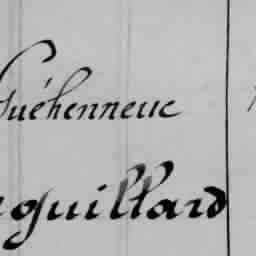 Guéhenneuc
guillard